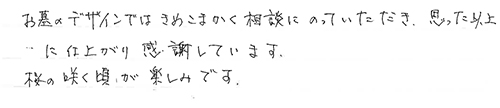 お墓のデザインではきめこまかく相談にのっていただき、思った以上
に仕上がり感謝しています。
桜の咲く頃が楽しみです。